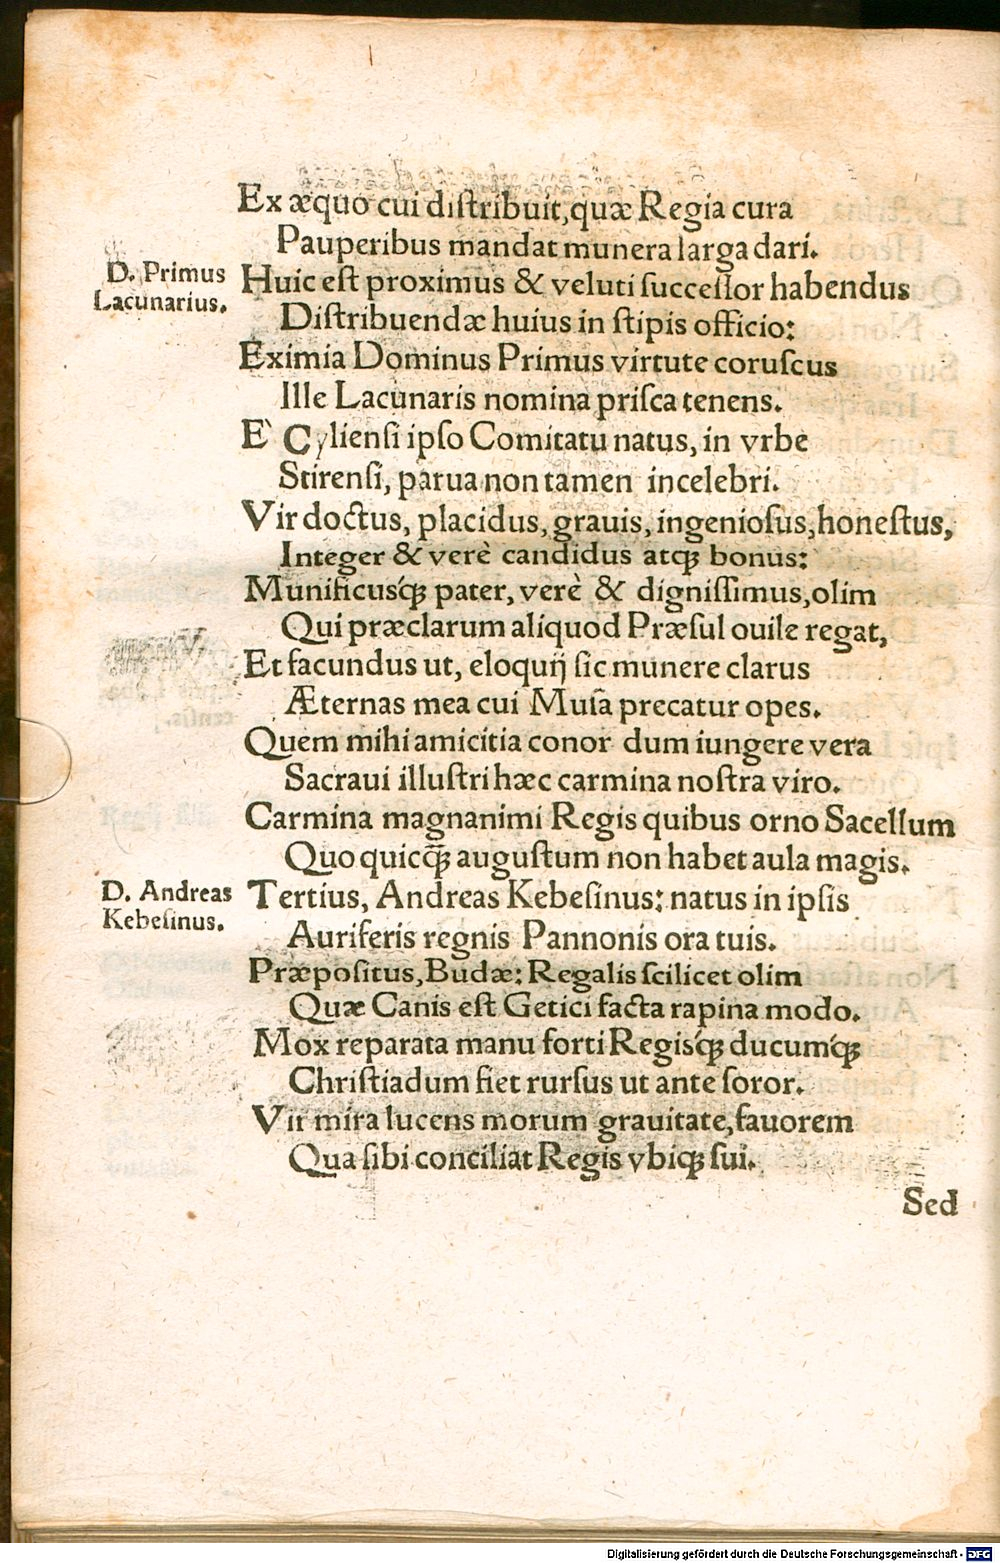 Ex æquo cui diſtribuit, quæ Regia cura
Pauperibus mandat munera larga dari.
D. Primus
Lacunarius.
Huic eſt proximus & veluti ſucceſſor habendus
Diſtribuendæ huius in ſtipis officio:
Eximia Dominus Primus virtute coruſcus
Ille Lacunaris nomina priſca tenens.
E` Cylienſi ipſo Comitatu natus, in vrbe
Stirenſi, parua non tamen incelebri.
Vir doctus, placidus, grauis, ingenioſus, honeſtus,
Integer & verè candidus atqꝫ bonus:
Munificusq́ꝫ pater, verè & digniſſimus, olim
Qui præclarum aliquod Præſul ouile regat,
Et facundus ut, eloquij ſic munere clarus
Æternas mea cui Muſa precatur opes.
Quem mihi amicitia conor dum iungere vera
Sacraui illuſtri hæc carmina noſtra viro.
Carmina magnanimi Regis quibus orno Sacellum
Quo quicqꝫ̃ auguſtum non habet aula magis.
D. Andreas
Kebeſinus.
Tertius, Andreas Kebeſinus: natus in ipſis
Auriferis regnis Pannonis ora tuis.
Præpoſitus, Budæ: Regalis ſcilicet olim
Quæ Canis eſt Getici facta rapina modo.
Mox reparata manu forti Regisq́ꝫ ducumq́ꝫ
Chriſtiadum fiet rurſus ut ante ſoror.
Vir mira lucens morum grauitate, fauorem
Qua ſibi conciliat Regis vbiqꝫ ſui.
Sed
Digitalisierung gefördert durch die Deutsche Forschungsgemeinschaft - DFG